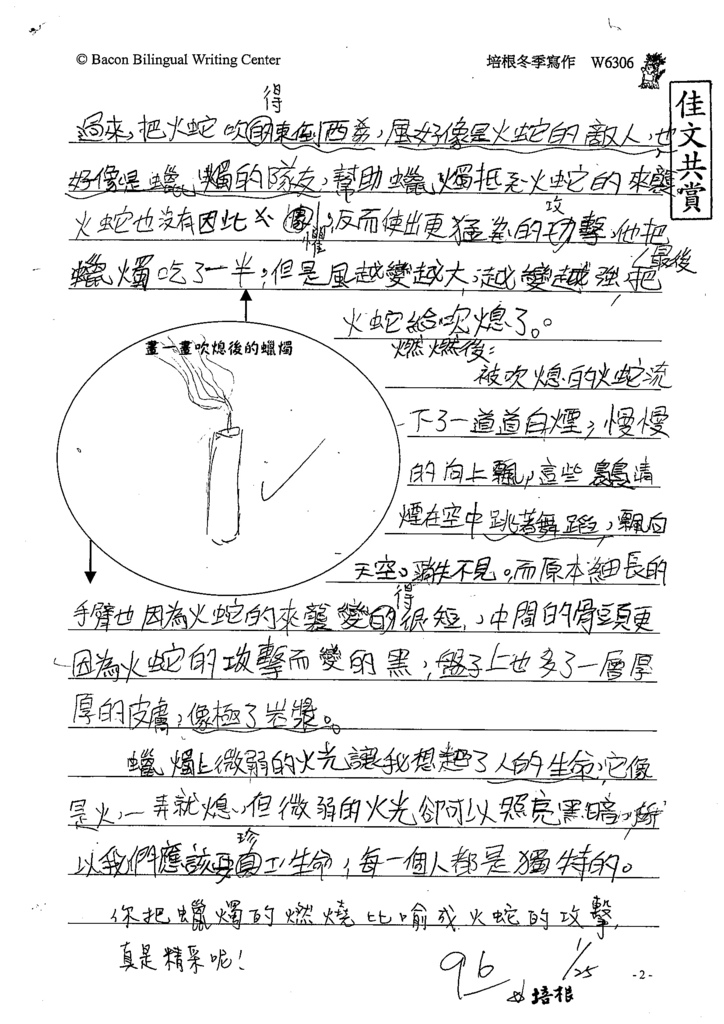 © Bacon Bilingual Writing Center 培根冬季寫作 W6306
佳文共賞
得
過來,把火蛇吹的東倒西歪,風好像是火蛇的敵人,也
好像是蠟燭的隊友,幫助蠟燭抵抗火蛇的來襲
攻
火蛇也沒有因此 反而使出更猛烈的功擊,他把
懼
最後
蠟燭吃了一半,但是風越變越大,越變越強,把
火蛇給吹熄了。
燃燃後:
畫一畫吹熄後的蠟燭
被吹熄的火蛇流
下了一道道白煙,慢慢
的向上飄,這些 清
煙在空中跳著舞蹈,飄向
天空。消失不見。而原本細長的
得
手臂也因為火蛇的來襲變的很短,中間的骨頭更
因為火蛇的攻擊而變的黑,盤子上也多了一層厚
厚的皮膚,像極了岩漿。
蠟燭上微弱的火光讓我想起了人的生命,它像
是火,一弄就熄,但微弱的火光卻可以照亮黑暗,所
珍
以我們應該要 生命,每一個人都是獨特的。
你把蠟燭的燃燒比喻成火蛇的攻擊,
真是精采呢!
96
1/25
培根
-2-